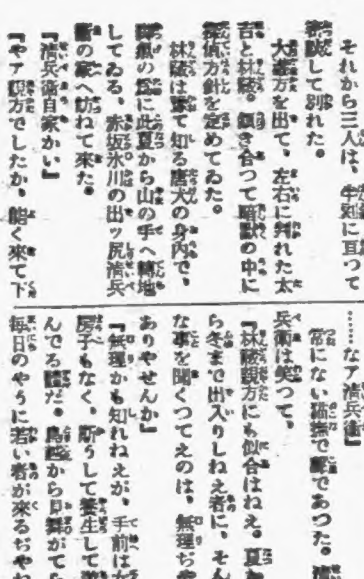 それから三人は、半刻に亙つて
密談して別れた。
大嘉方を出て、左右に別れた太
吉と林蔵。頷き合つて暗黙の中に
探偵方針を定めてゐた。
林蔵は豫て知る唐犬の身内で、
脚気の為に此夏から山の手へ轉地
してゐる、赤坂氷川の出ッ尻清兵
衛の家へ訪ねて来た。
『清兵衛自家かい』
『ヤア親方でしたか、能く來て下
……なア清兵衛』
常にない猫撫で聲であつた。清
兵衛は笑つて、
『林蔵親方にも似合はねえ。夏か
ら冬まで出入りしねえ者に、そん
な事を聞くつてえのは、無理ぢや
ありやせんか』
『無理かも知れねえが、手前は女
房子もなく、斯うして養生して遊
んでる體だ。鳥越から見舞がてら
毎日のやうに若い者が來るぢやね